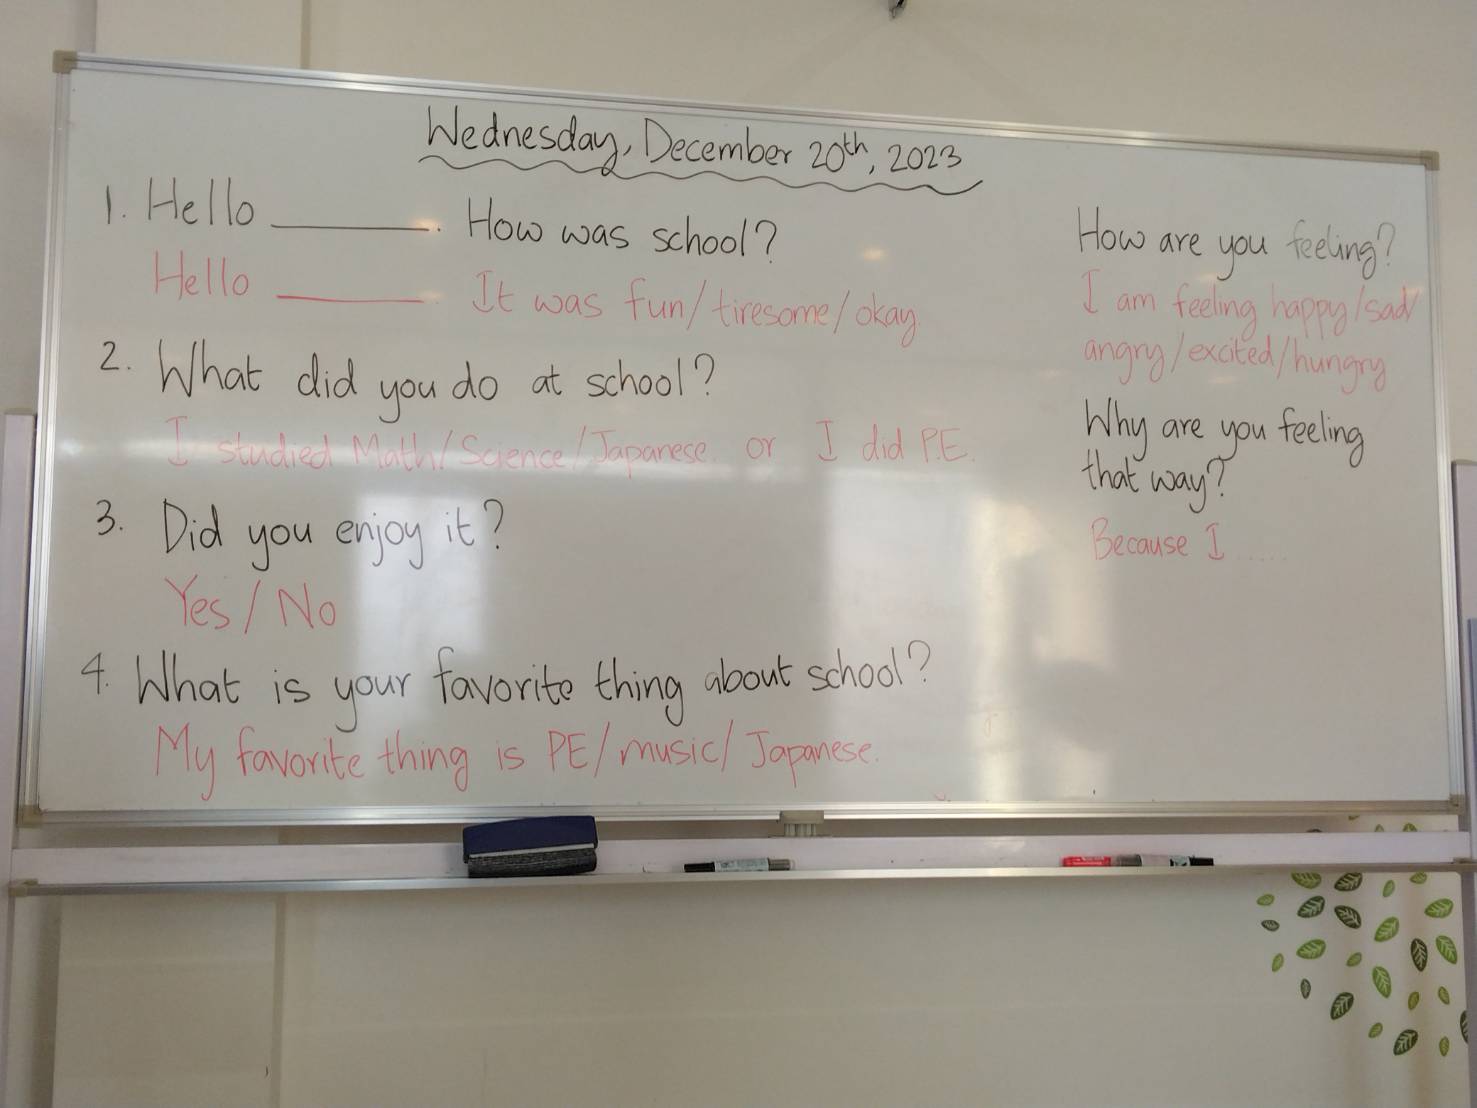 Wednesday, December 20th, 2023
1. Hello ________. How was school?
Hello ________. It was fun/tiresome/okay.
2. What did you do at school?
I studied Math/Science/Japanese. or I did P.E.
3. Did you enjoy it?
Yes/No
4. What is your favorite thing about school?
My favorite thing is PE/music/Japanese.
How are you feeling?
I am feeling happy/sad/
angry/excited/hungry
Why are you feeling
that way?
Because I ......